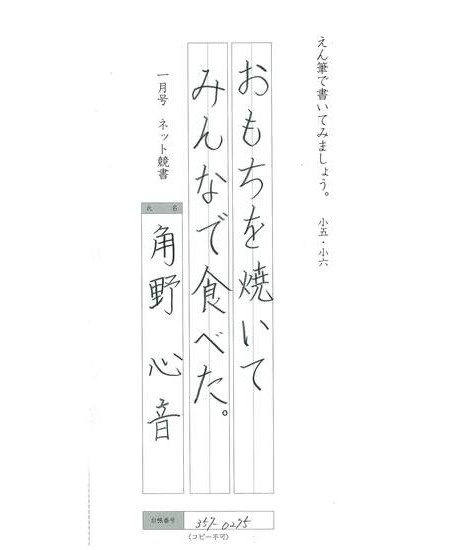 えん筆で書いてみましょう。 小五・小六
おもちを焼いて
みんなで食べた。
一月号 ネット競書
氏名
角野 心音
台帳番号 357-0275
(コピー不可)